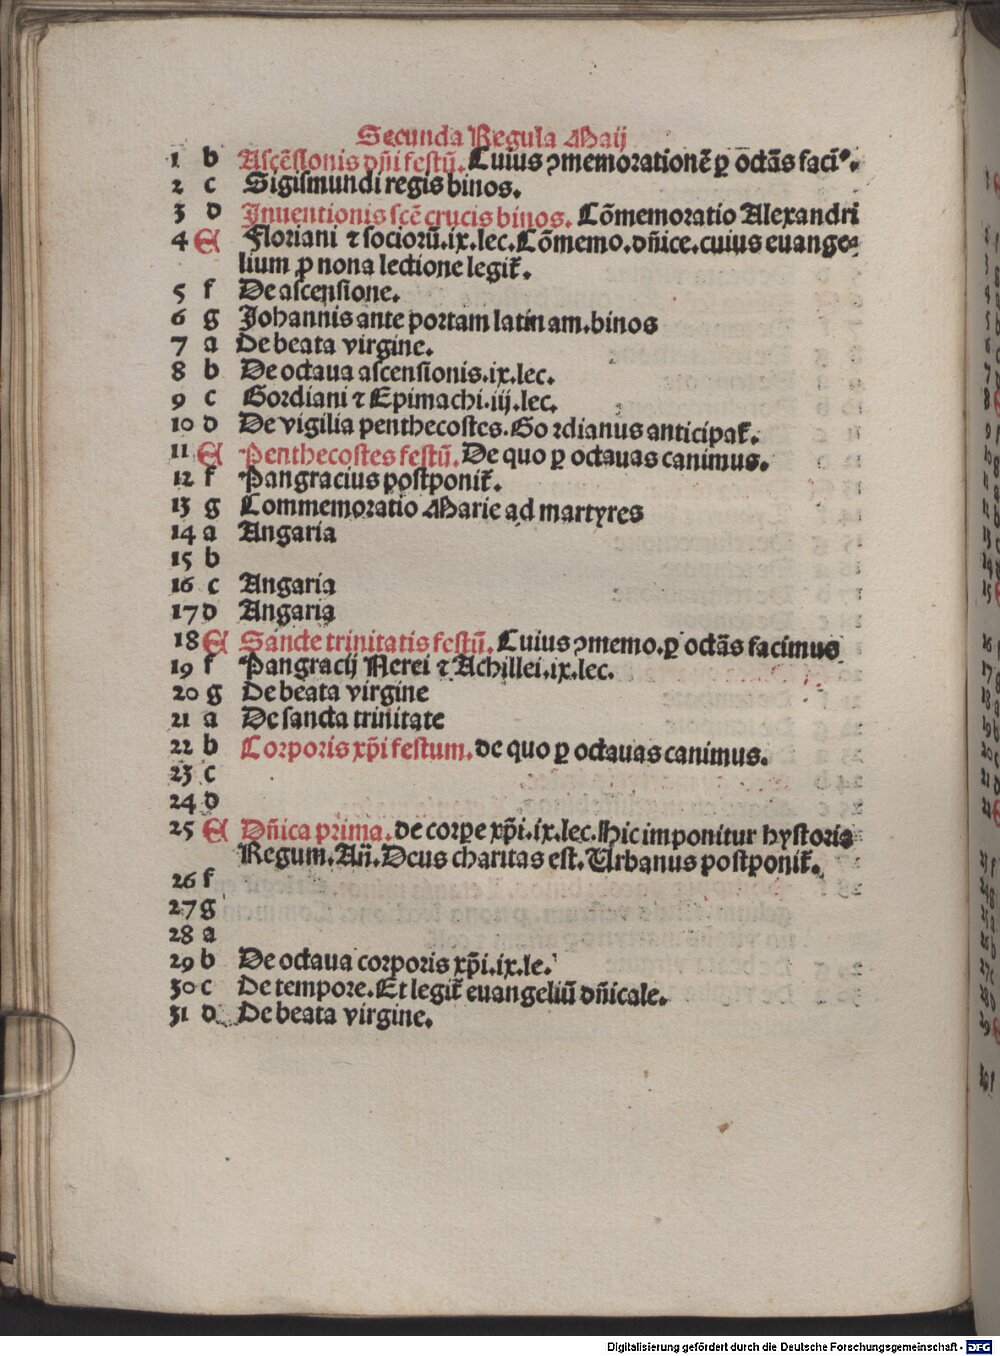 Secunda Regula Maij
1 b Ascẽsionis dñi festũ. Cuius ꝯmemorationẽ ꝑ octãs facimꝰ.
2 c Sigismundi regis binos.
3 d Inuentionis scẽ crucis binos. Cõmemoratio Alexandri
4 E Floriani ⁊ socioruũ. ix. lec. Cõmemo. dñice. cuius euange⸗
lium ꝓ nona lectione legit᷑.
5 f De ascensione.
6 g Johannis ante portam latinam. binos
7 a De beata virgine.
8 b De octaua ascensionis. ix. lec.
9 c Gordiani ⁊ Epimachi. iij. lec.
10 d De vigilia penthecostes. Gordianus anticipat᷑.
11 E Penthecostes festũ. De quo ꝑ octauas canimus.
12 f Pangracius postponit᷑.
13 g Commemoratio Marie ad martyres
14 a Angaria
15 b
16 c Angaria
17 d Angaria
18 E Sancte trinitatis festũ. Cuius ꝯmemo. ꝑ octãs facimus
19 f Pangracij Nerei ⁊ Achillei. ix. lec.
20 g De beata virgine
21 a De sancta trinitate
22 b Corporis xp̃i festum. de quo ꝑ octauas canimus.
23 c
24 d
25 E Dñica prima. de corpe xp̃i. ix. lec. Hic imponitur hystoria
Regum. Añ. Deus charitas est. Urbanus postponit᷑.
26 f
27 g
28 a
29 b De octaua corporis xp̃i. ix. le.
30 c De tempore. Et legit᷑ euangeliũ dñicale.
31 d De beata virgine.
Digitalisierung gefördert durch die Deutsche Forschungsgemeinschaft - DFG